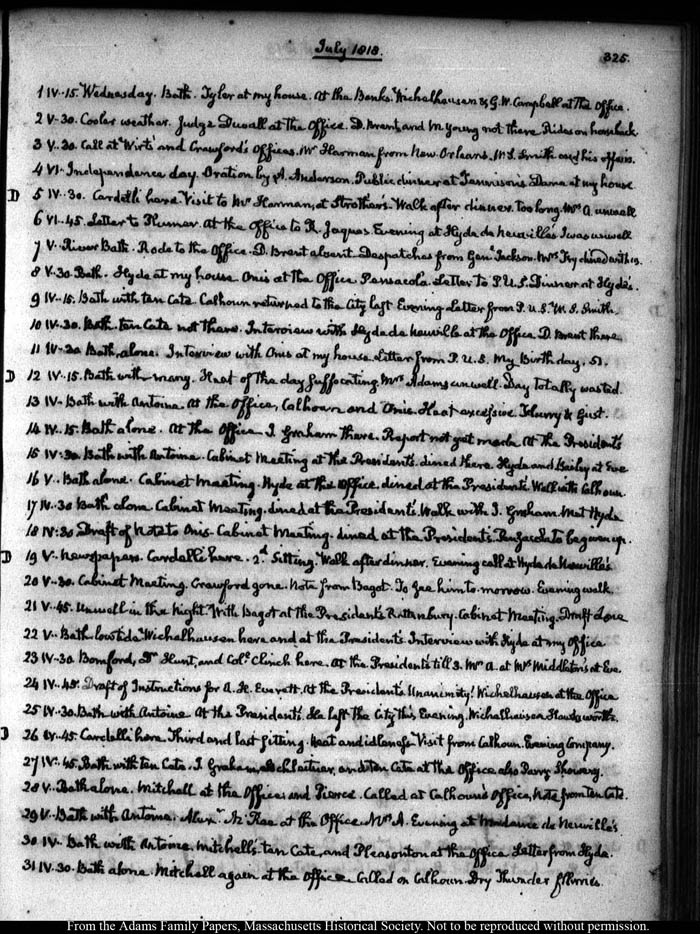 July 1818.
325.
1 IV..15. Wednesday. Bath. Tyler at my house. At the Banks. Wichelhausen & G. W. Campbell at the Office.
2 V..30. Cooler weather. Judge Duvall at the Office. D. Brent and M Young not there Rides on horseback
3 V..30. Call at Wirt's and Crawford's Offices. Mr Harman from New Orleans. W. S. Smith and his affairs.
4 VI.. Independence day. Oration by A. Anderson. Public dinner at Tennison's Dana at my house
D 5 IV..30. Cardelli here. Visit to Mr Harman, at Strother's. Walk after dinner. Too long. Mrs A. unwell
6 VI..45. Letter to Plumer. At the Office to R. Jaques. Evening at Hyde de Neuville's I was unwell
7 V.. River Bath. Rode to the Office. D. Brent absent. Despatches from Genl Jackson. Mrs Fry dined with us.
8 V.30. Bath. Hyde at my house Onis at the Office. Pensacola. Letter to P. U. S. Dinner at Hyde's.
9 IV..15. Bath with ten Cate. Calhoun returned to the City last Evening Letter from P. U. S. W. S. Smith.
10 IV..30. Bath. ten Cate not there. Interview with Hyde de Neuville at the Office D. Brent there
11 IV..30 Bath, alone. Interview with Onis at my house Letter from P. U. S. My Birth day. 51.
D 12 IV..15. Bath with many. Heat of the day suffocating Mrs Adams unwell. Day totally wasted.
13 IV.. Bath with Antoine. At the Office, Calhoun and Onis. Heat excessive. Flurry & Gust.
14 IV..15. Bath alone. At the Office I. Graham there. Report not yet made At the President's
15 IV..30. Bath with Antoine. Cabinet Meeting at the President's. dined there. Hyde and Bailey at Eve
16 V.. Bath alone. Cabinet Meeting. Hyde at the Office. dined at the President's Walk with Calhoun
17 IV..30 Bath alone Cabinet Meeting. dined at the President's. Walk with I. Graham. Met Hyde
18 IV:30 Draft of Note to Onis. Cabinet Meeting. dined at the President's. Pensacola to be given up.
D 19 V.. Newspapers. Cardelli here. 2.d Sitting. Walk after dinner. Evening call at Hyde de Neuville's
20 V..30. Cabinet Meeting. Crawford gone. Note from Bagot. To see him to-morrow. Evening walk.
21 V..45. Unwell in the Night. With Bagot at the President's Rattenbury. Cabinet Meeting. Draft done
22 V.. Bath. low tide Wichelhausen here and at the President's Interview with Hyde at my Office
23 IV..30. Bomford, Dr Hunt, and Col.l Clinch here. At the President's till 3. Mrs A. at Mrs Middleton's at Eve.
24 IV..45. Draft of Instructions for A. H. Everett. At the President's Unanimity! Wichelhausen at the Office
25 IV..30. Bath with Antoine At the President's. He left the City this Evening. Wichelhausen Hawksworth.
D 26 IV..45. Cardelli here. Third and last sitting. Heat and idleness Visit from Calhoun. Evening Company.
27 IV..45. Bath with ten Cate. I. Graham, and ten Cate at the Office also Parry Showery.
28 V.. Bath alone. Mitchell at the Office and Pierce. Called at Calhoun's Office, Note from ten Cate.
29 V.. Bath with Antoine. Alexr McRae at the Office. Mrs A. Evening at Madame de Neuville's
30 IV.. Bath with Antoine. Mitchell, ten Cate, and Pleasonton at the Office Letter from Hyde.
31 IV..30. Bath alone. Mitchell again at the Office Called on Calhoun. Dry Thunder flurries.
From the Adams Family Papers, Massachusetts Historical Society. Not to be reproduced without permission.